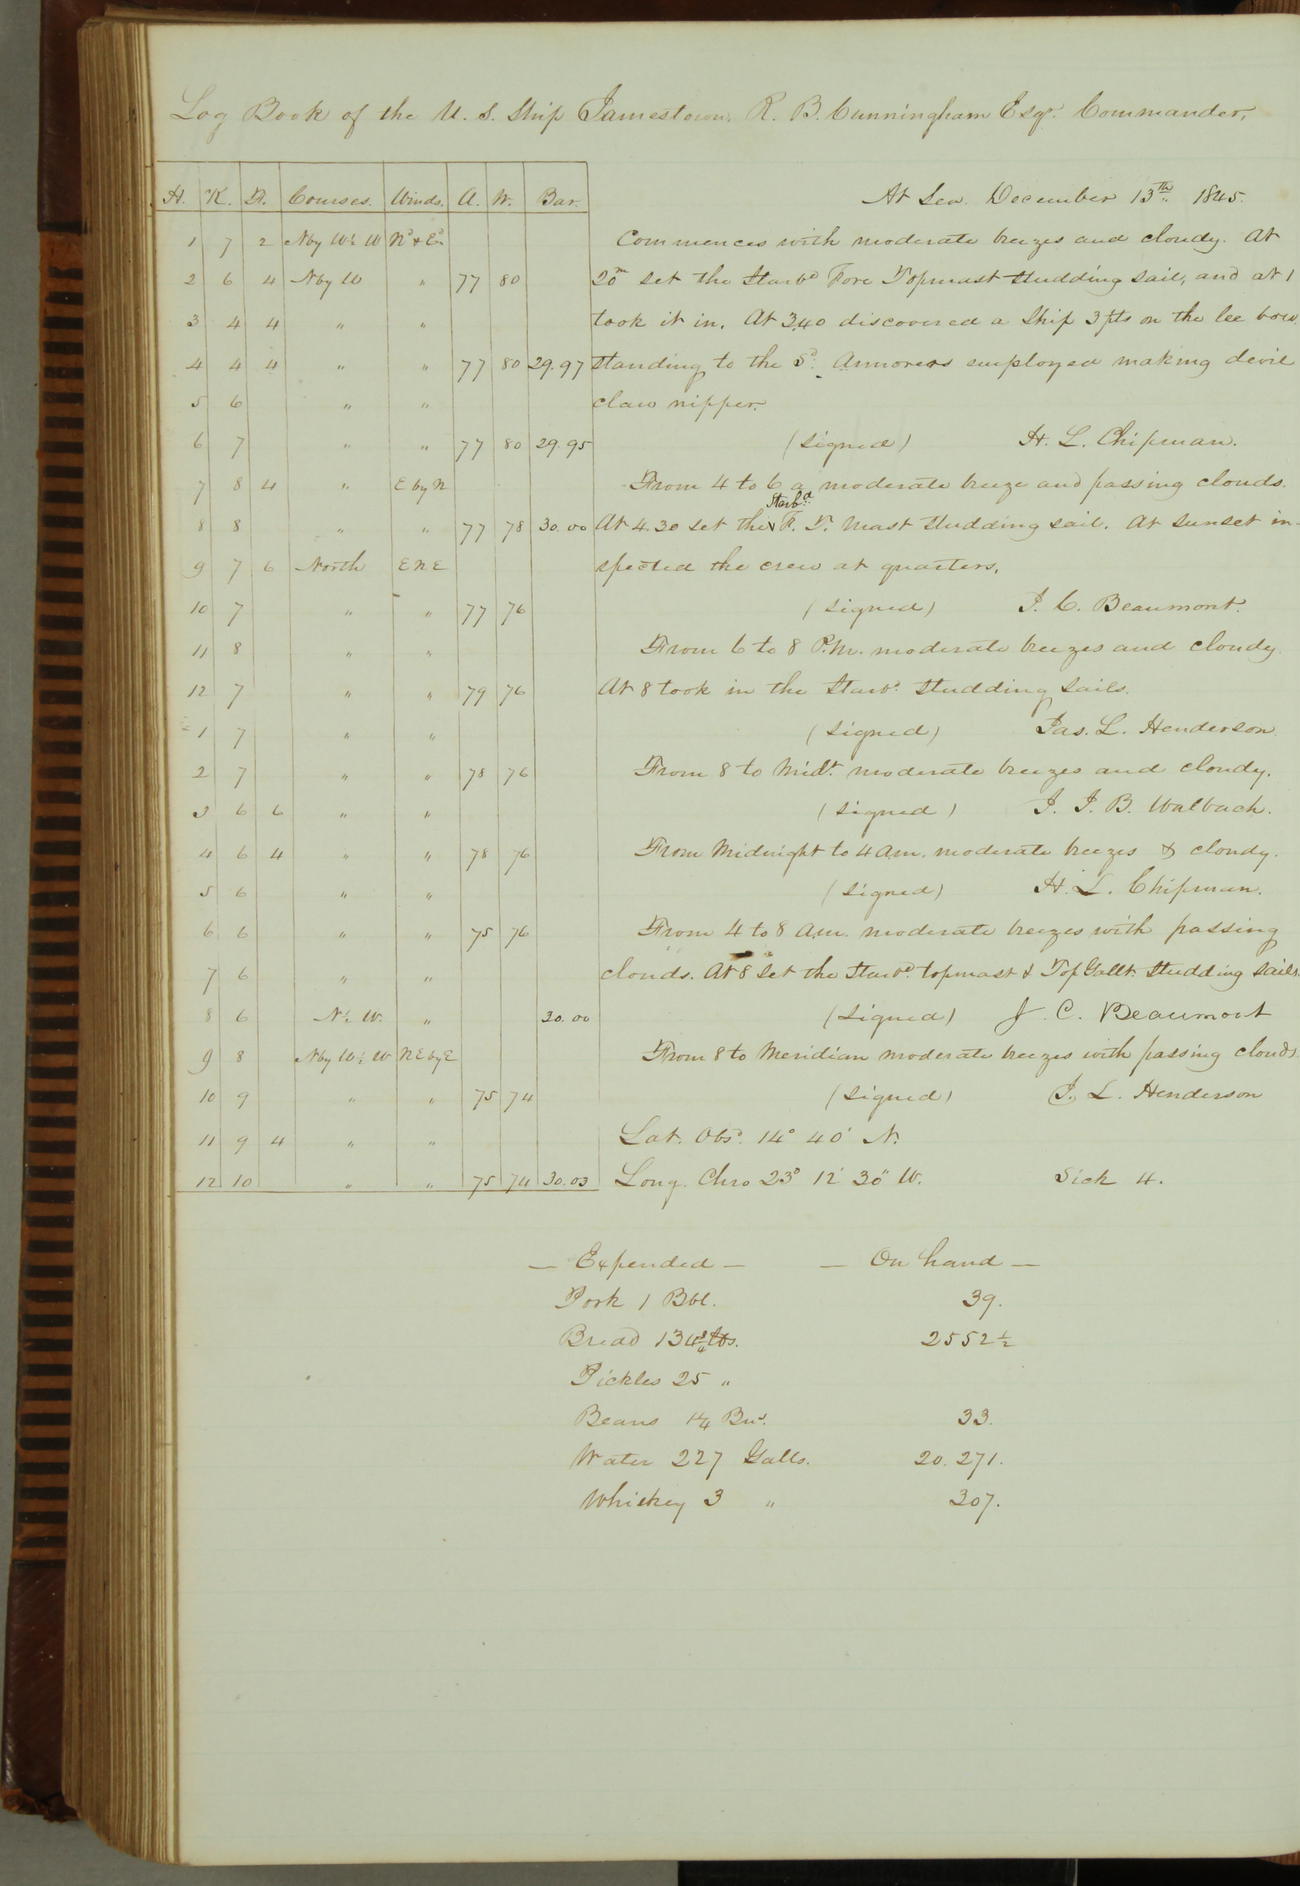 Log Book of the U. S. Ship Jamestown, R. B. Cunningham Esqr. Commander,
H. K. Fs. Courses. Winds. A. W. Bar.
At Sea December 13th 1845.
1 7 2 N by W½ W Nd & Ed
2 6 4 N by W " 77 80
3 4 4 " "
4 4 4 " " 77 80 29.97
5 6 " "
6 7 " " 77 80 29.95
7 8 4 " E by N
8 8 " " 77 78 30.00
9 7 6 North E N E
10 7 " " 77 76
11 8 " "
12 7 " " 79 76
1 7 " "
2 7 " " 78 76
3 6 6 " "
4 6 4 " " 78 76
5 6 " "
6 6 " " 75 76
7 6 " "
8 6 N½ W. " 30.00
9 8 N by W½ W N E by E
10 9 " " 75 74
11 9 4 " "
12 10 " " 75 74 30.03
Commences with moderate breezes and cloudy. At
20m set the Starbd Fore Topmast studding sail, and at 1
took it in. At 3.40 discovered a Ship 3 pts on the lee bow
standing to the Sd. Armorers employed making devil
claw nipper.
(signed) H. L. Chipman.
From 4 to 6 a moderate breeze and passing clouds.
At 4.30 set the Starbd F. T. Mast studding sail. At sunset in-
spected the crew at quarters.
(signed) J. C. Beaumont.
From 6 to 8 P.M. moderate breezes and cloudy.
At 8 took in the Starbd. Studding sails.
(signed) Jas. L. Henderson.
From 8 to Midt. moderate breezes and cloudy.
(signed) J. J. B. Walbach.
From Midnight to 4 am. moderate breezes & cloudy.
(signed) H. L. Chipman.
From 4 to 8 a.m. moderate breezes with passing
clouds. At 8 set the Starbd. topmast & Top Gallt. Studding sails.
(signed) J. C. Beaumont
From 8 to Meridian moderate breezes with passing clouds.
(signed) J. L. Henderson
Lat. Obsd. 14° 40' N.
Long. Chro 23° 12' 30" W. Sick 4.
— Expended — — On hand —
Pork 1 Bbl. 39.
Bread 134¾ lbs. 2552½
Pickles 25 "
Beans 1¼ Bus. 33.
Water 227 Galls. 20.271.
Whiskey 3 " 307.